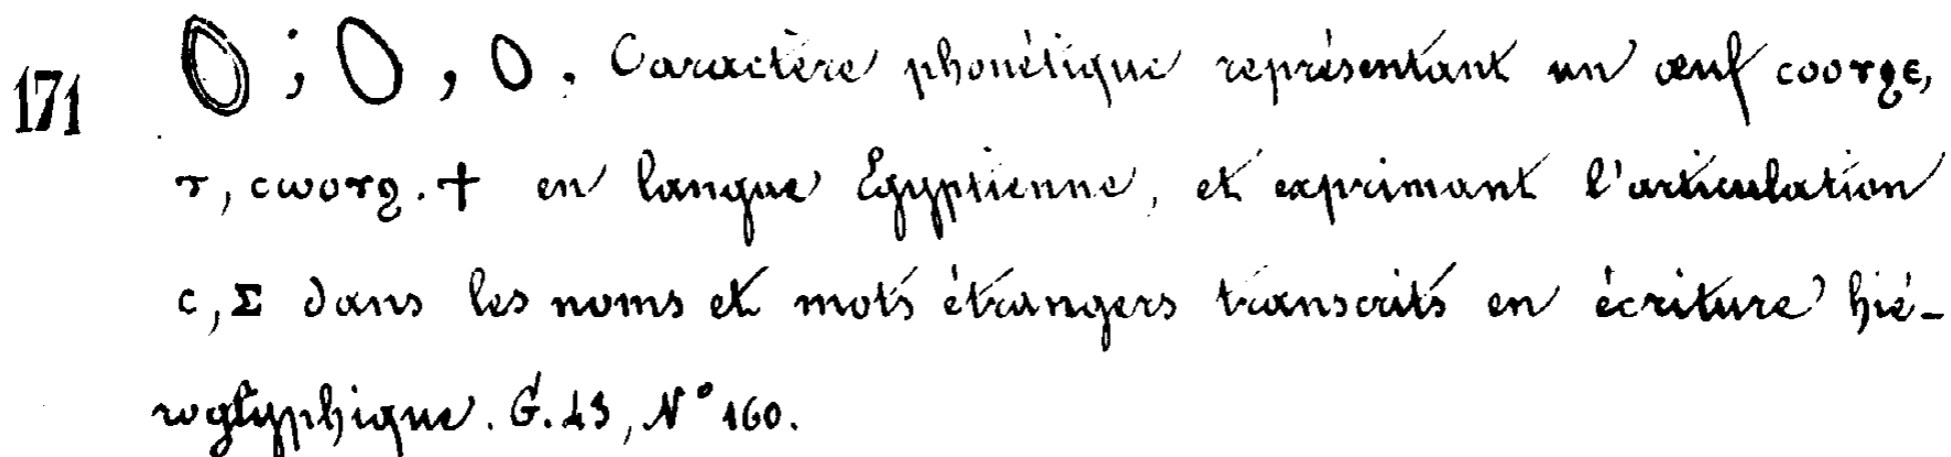 171 𓆇 ; 𓆇 , 𓆇 . Caractère phonétique représentant un œuf ⲥⲟⲟⲩϩⲉ,
ⲧ, ⲥⲱⲟⲩϩ.ϯ en langue Egyptienne, et exprimant l'articulation
ⲥ, Σ dans les noms et mots étrangers transcrits en écriture hié-
roglyphique. G. 43, N° 160.